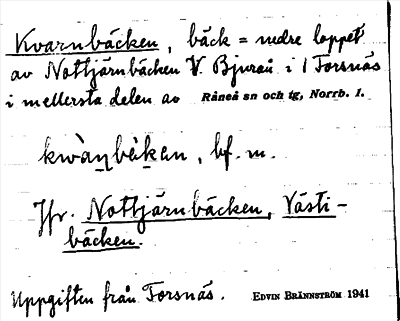 Kvarnbäcken, bäck = nedre loppet
av Nottjärnbäcken V. Bjuraå i 1 Torsnäs
i mellersta delen av Råneå sn och tg, Norrb. l.
kwàṇbä̀ken, bf. m.
Jfr. Nottjärnbäcken, Västi-
bäcken.
Uppgiften från Torsnäs. EDVIN BRÄNNSTRÖM 1941